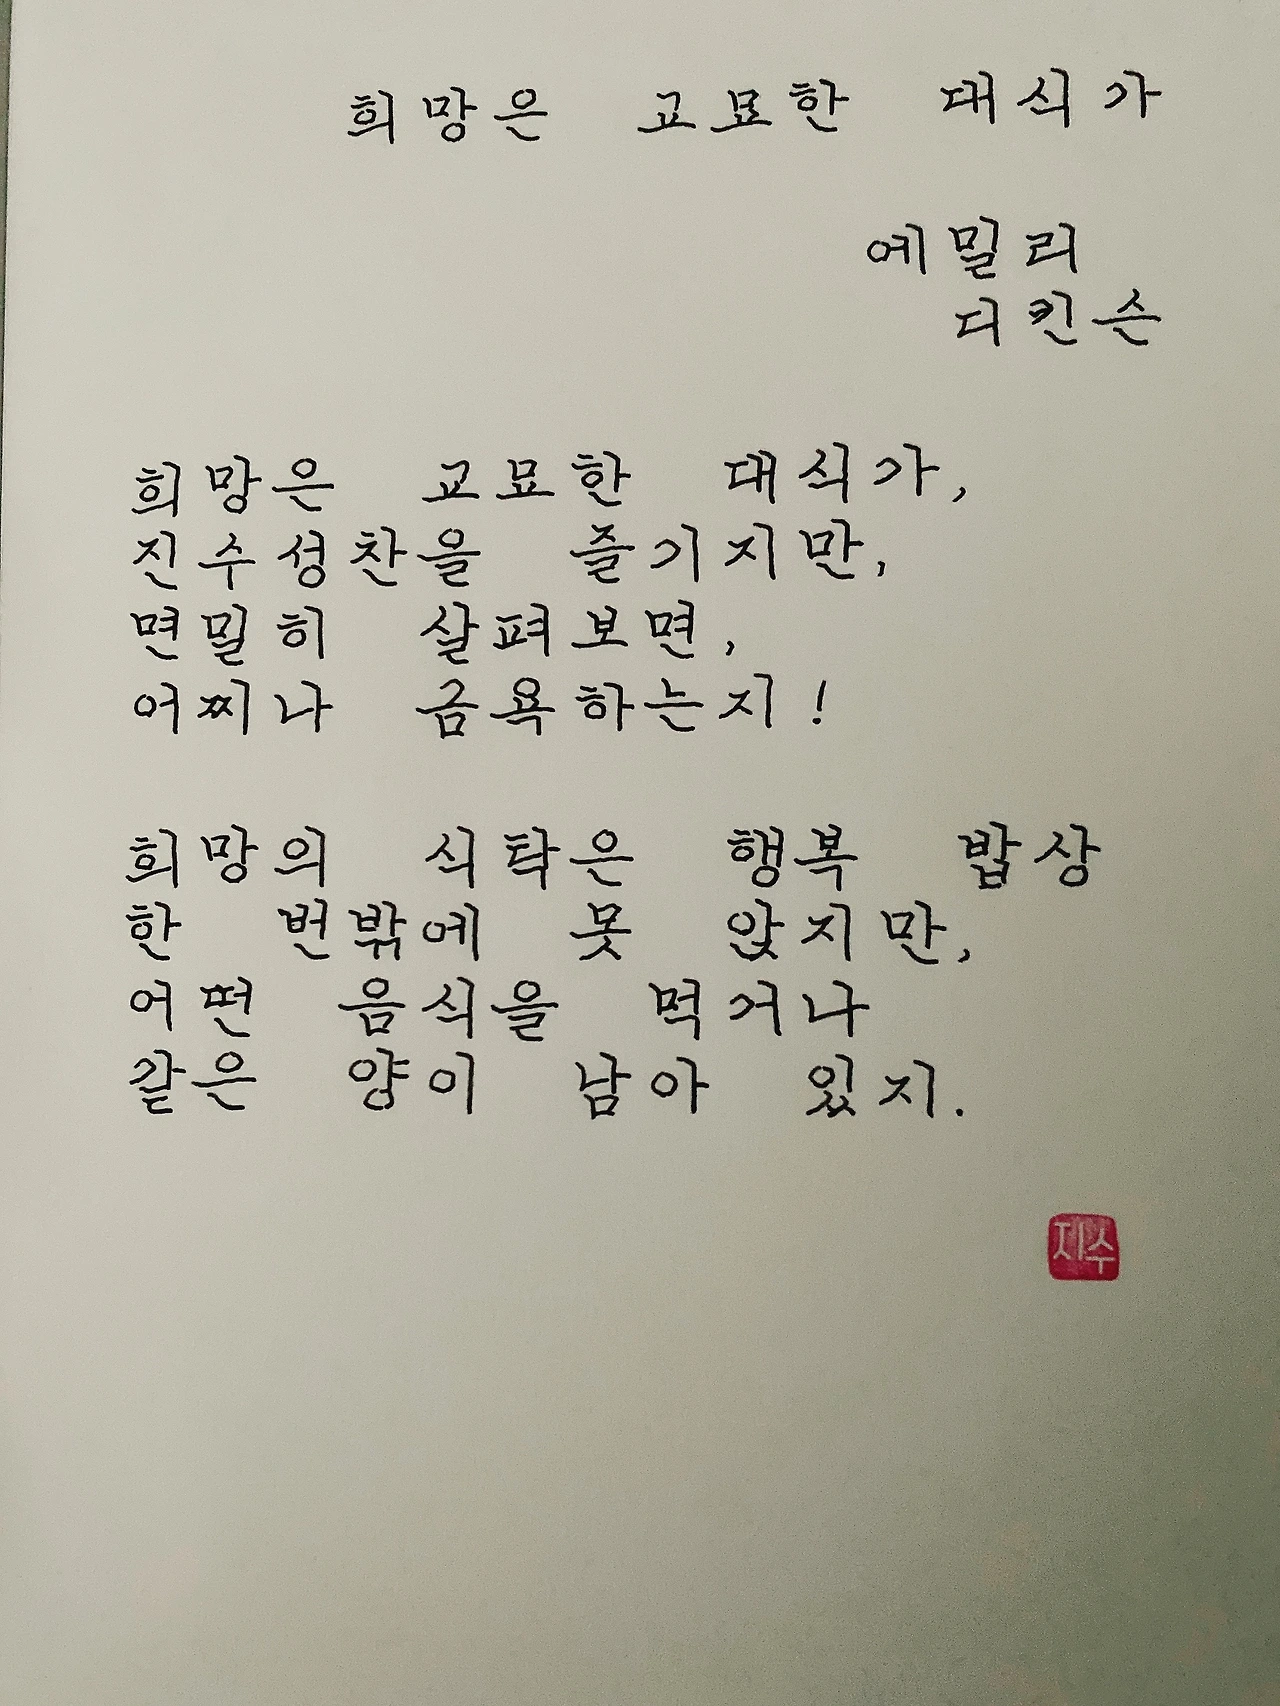 희망은 교묘한 대식가
에밀리
디킨슨
희망은 교묘한 대식가,
진수성찬을 즐기지만,
면밀히 살펴보면,
어찌나 금욕하는지!
희망의 식탁은 행복 밥상
한 번밖에 못 앉지만,
어떤 음식을 먹거나
같은 양이 남아 있지.
지수